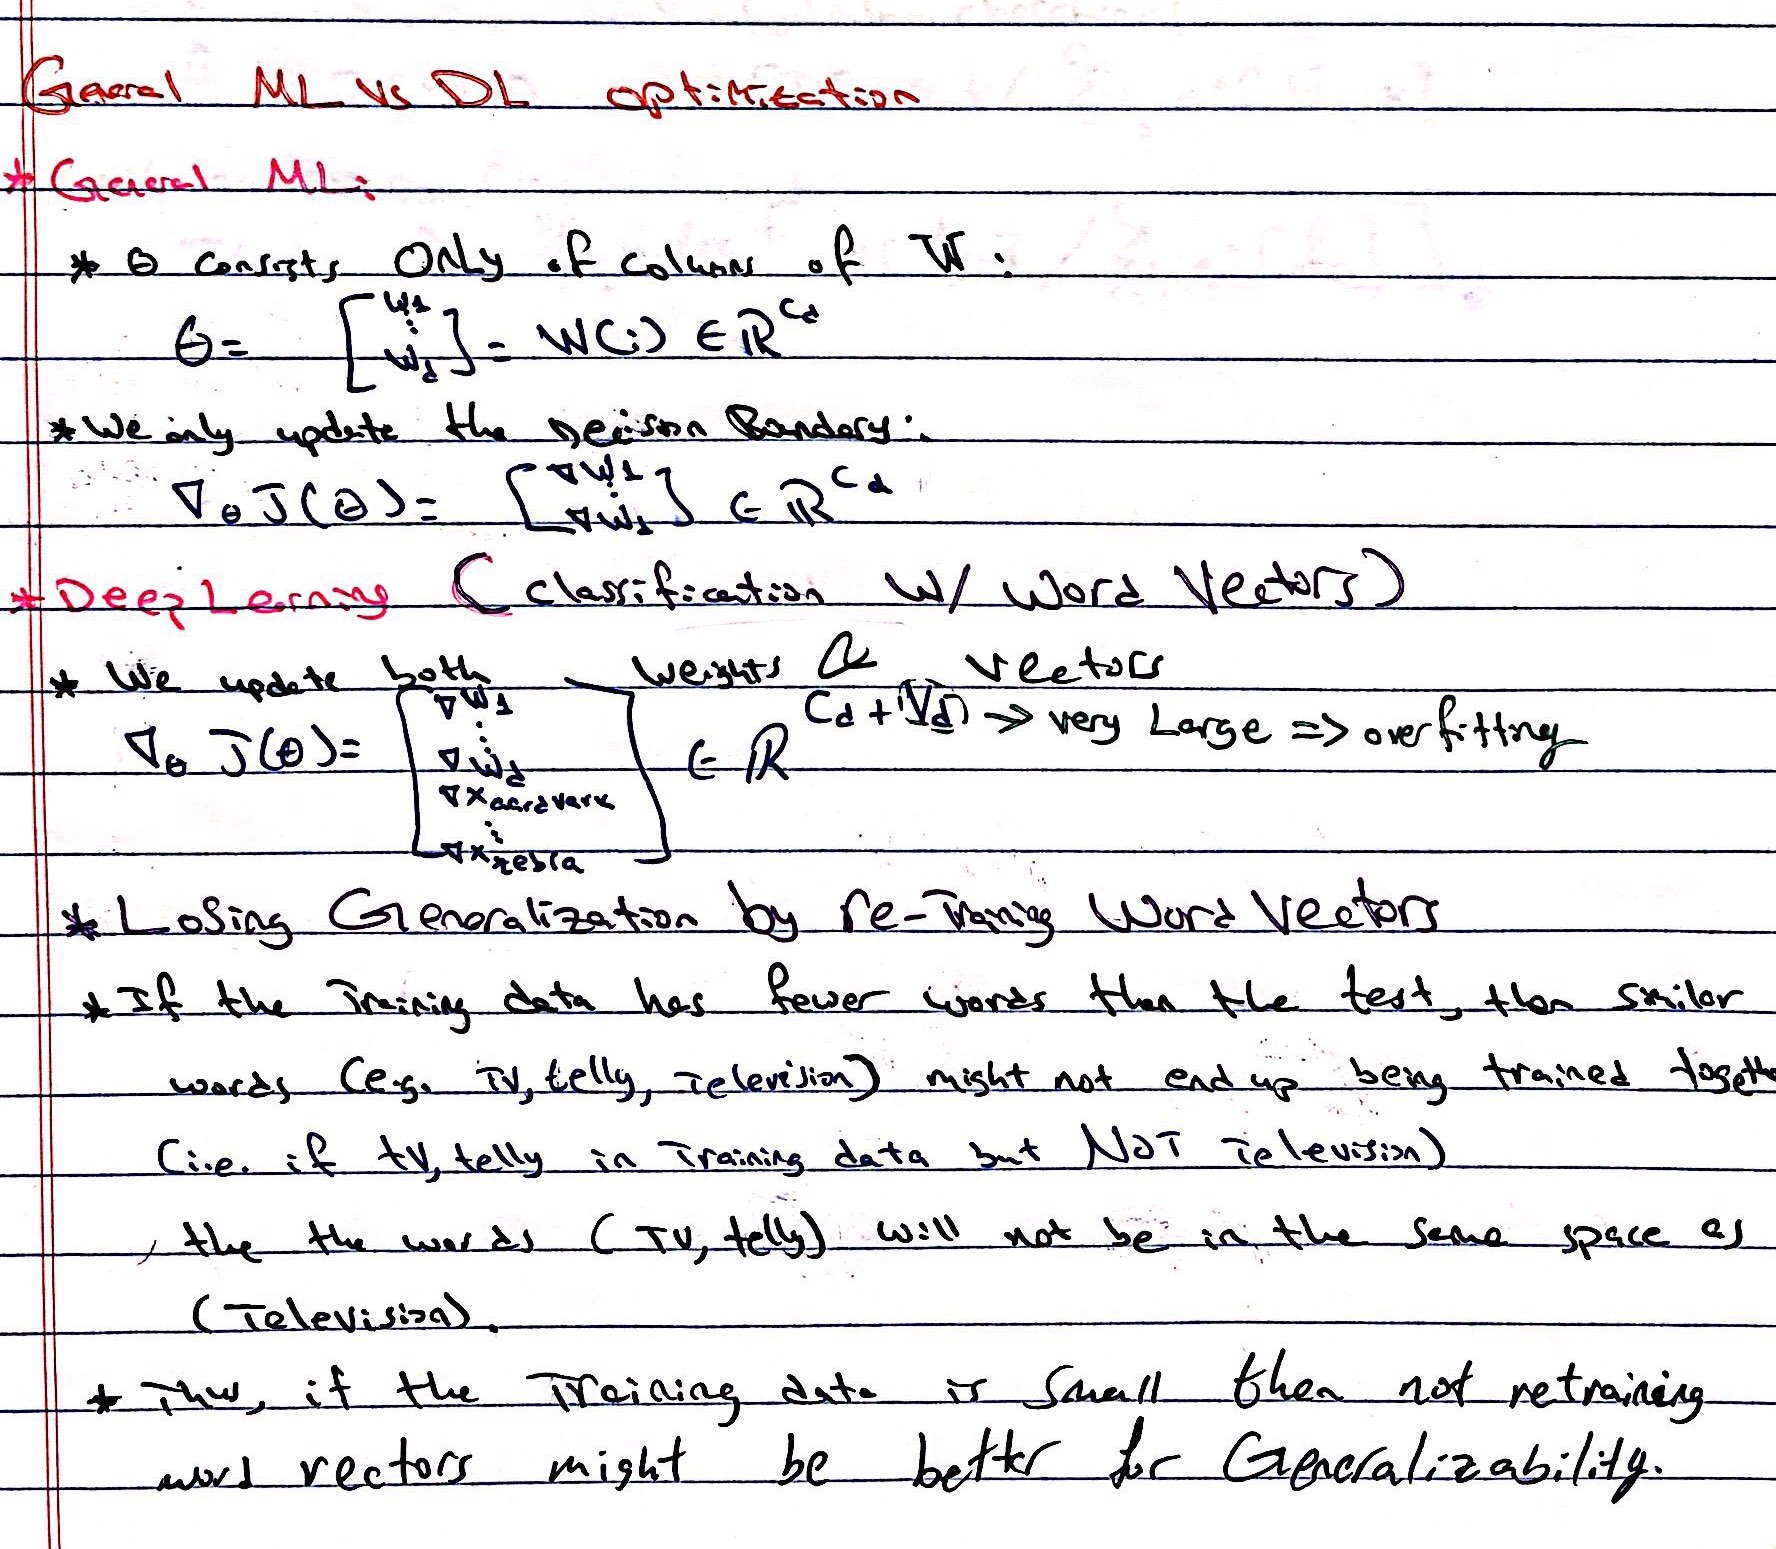 General ML vs DL optimization
* General ML:
* θ consists ONLY of columns of W:
θ = [W1 ⋮ Wd] = W(:) ∈ ℝ^Cd
* We only update the Decison Bondary:
∇θ J(θ) = [∇W1 ⋮ ∇Wd] ∈ ℝ^Cd
* Deep Learning (classification w/ Word Vectors)
* We update both weights & vectors
∇θ J(θ) = [∇W1 ⋮ ∇Wd ∇Xaardvark ⋮ ∇Xzebra] ∈ ℝ^Cd+(Vd) → very Large => overfitting
* Losing Generalization by re-Traning Word Vectors
* If the Training data has fewer words than the test, then similar
words (e.g. TV, telly, Television) might not end up being trained togethe
(i.e. if tV, telly in Training data but NOT Television)
, the the words (TV, telly) will not be in the same space as
(Television).
* Thus, if the Training data is small then not retraining
word vectors might be better for Generalizability.